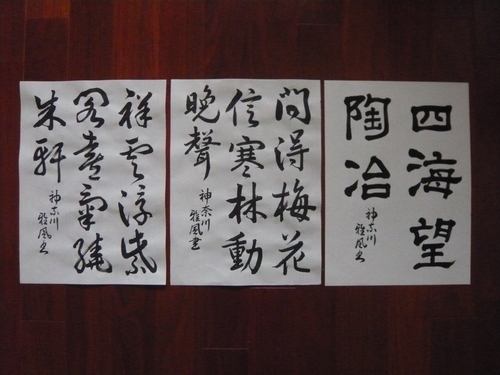 四海望
陶冶
神奈川
雅風書
問得梅花
信寒林動
晩聲
神奈川
雅風書
祥雲浮紫
閣喜氣繞
朱軒
神奈川
雅風書